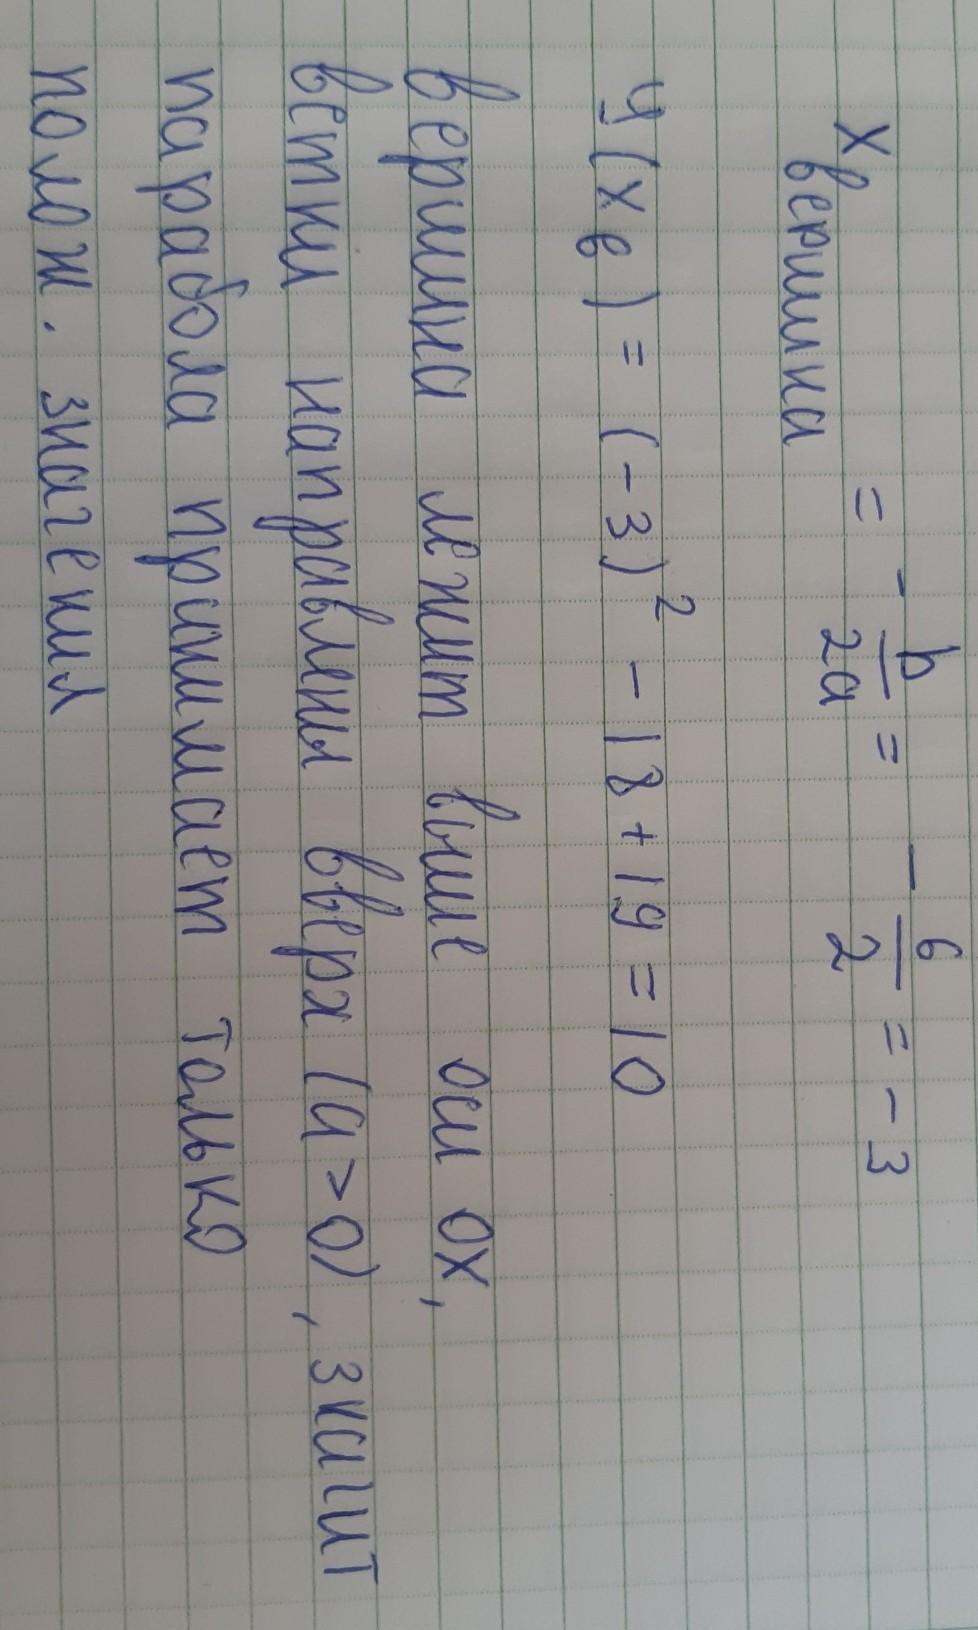 x вершина = - b/2a = - 6/2 = - 3
y(xв) = (-3)² - 18 + 19 = 10
вершина лежит выше оси ox,
ветки направлены вверх (a > 0), значит
парабола принимает только
полож. значения